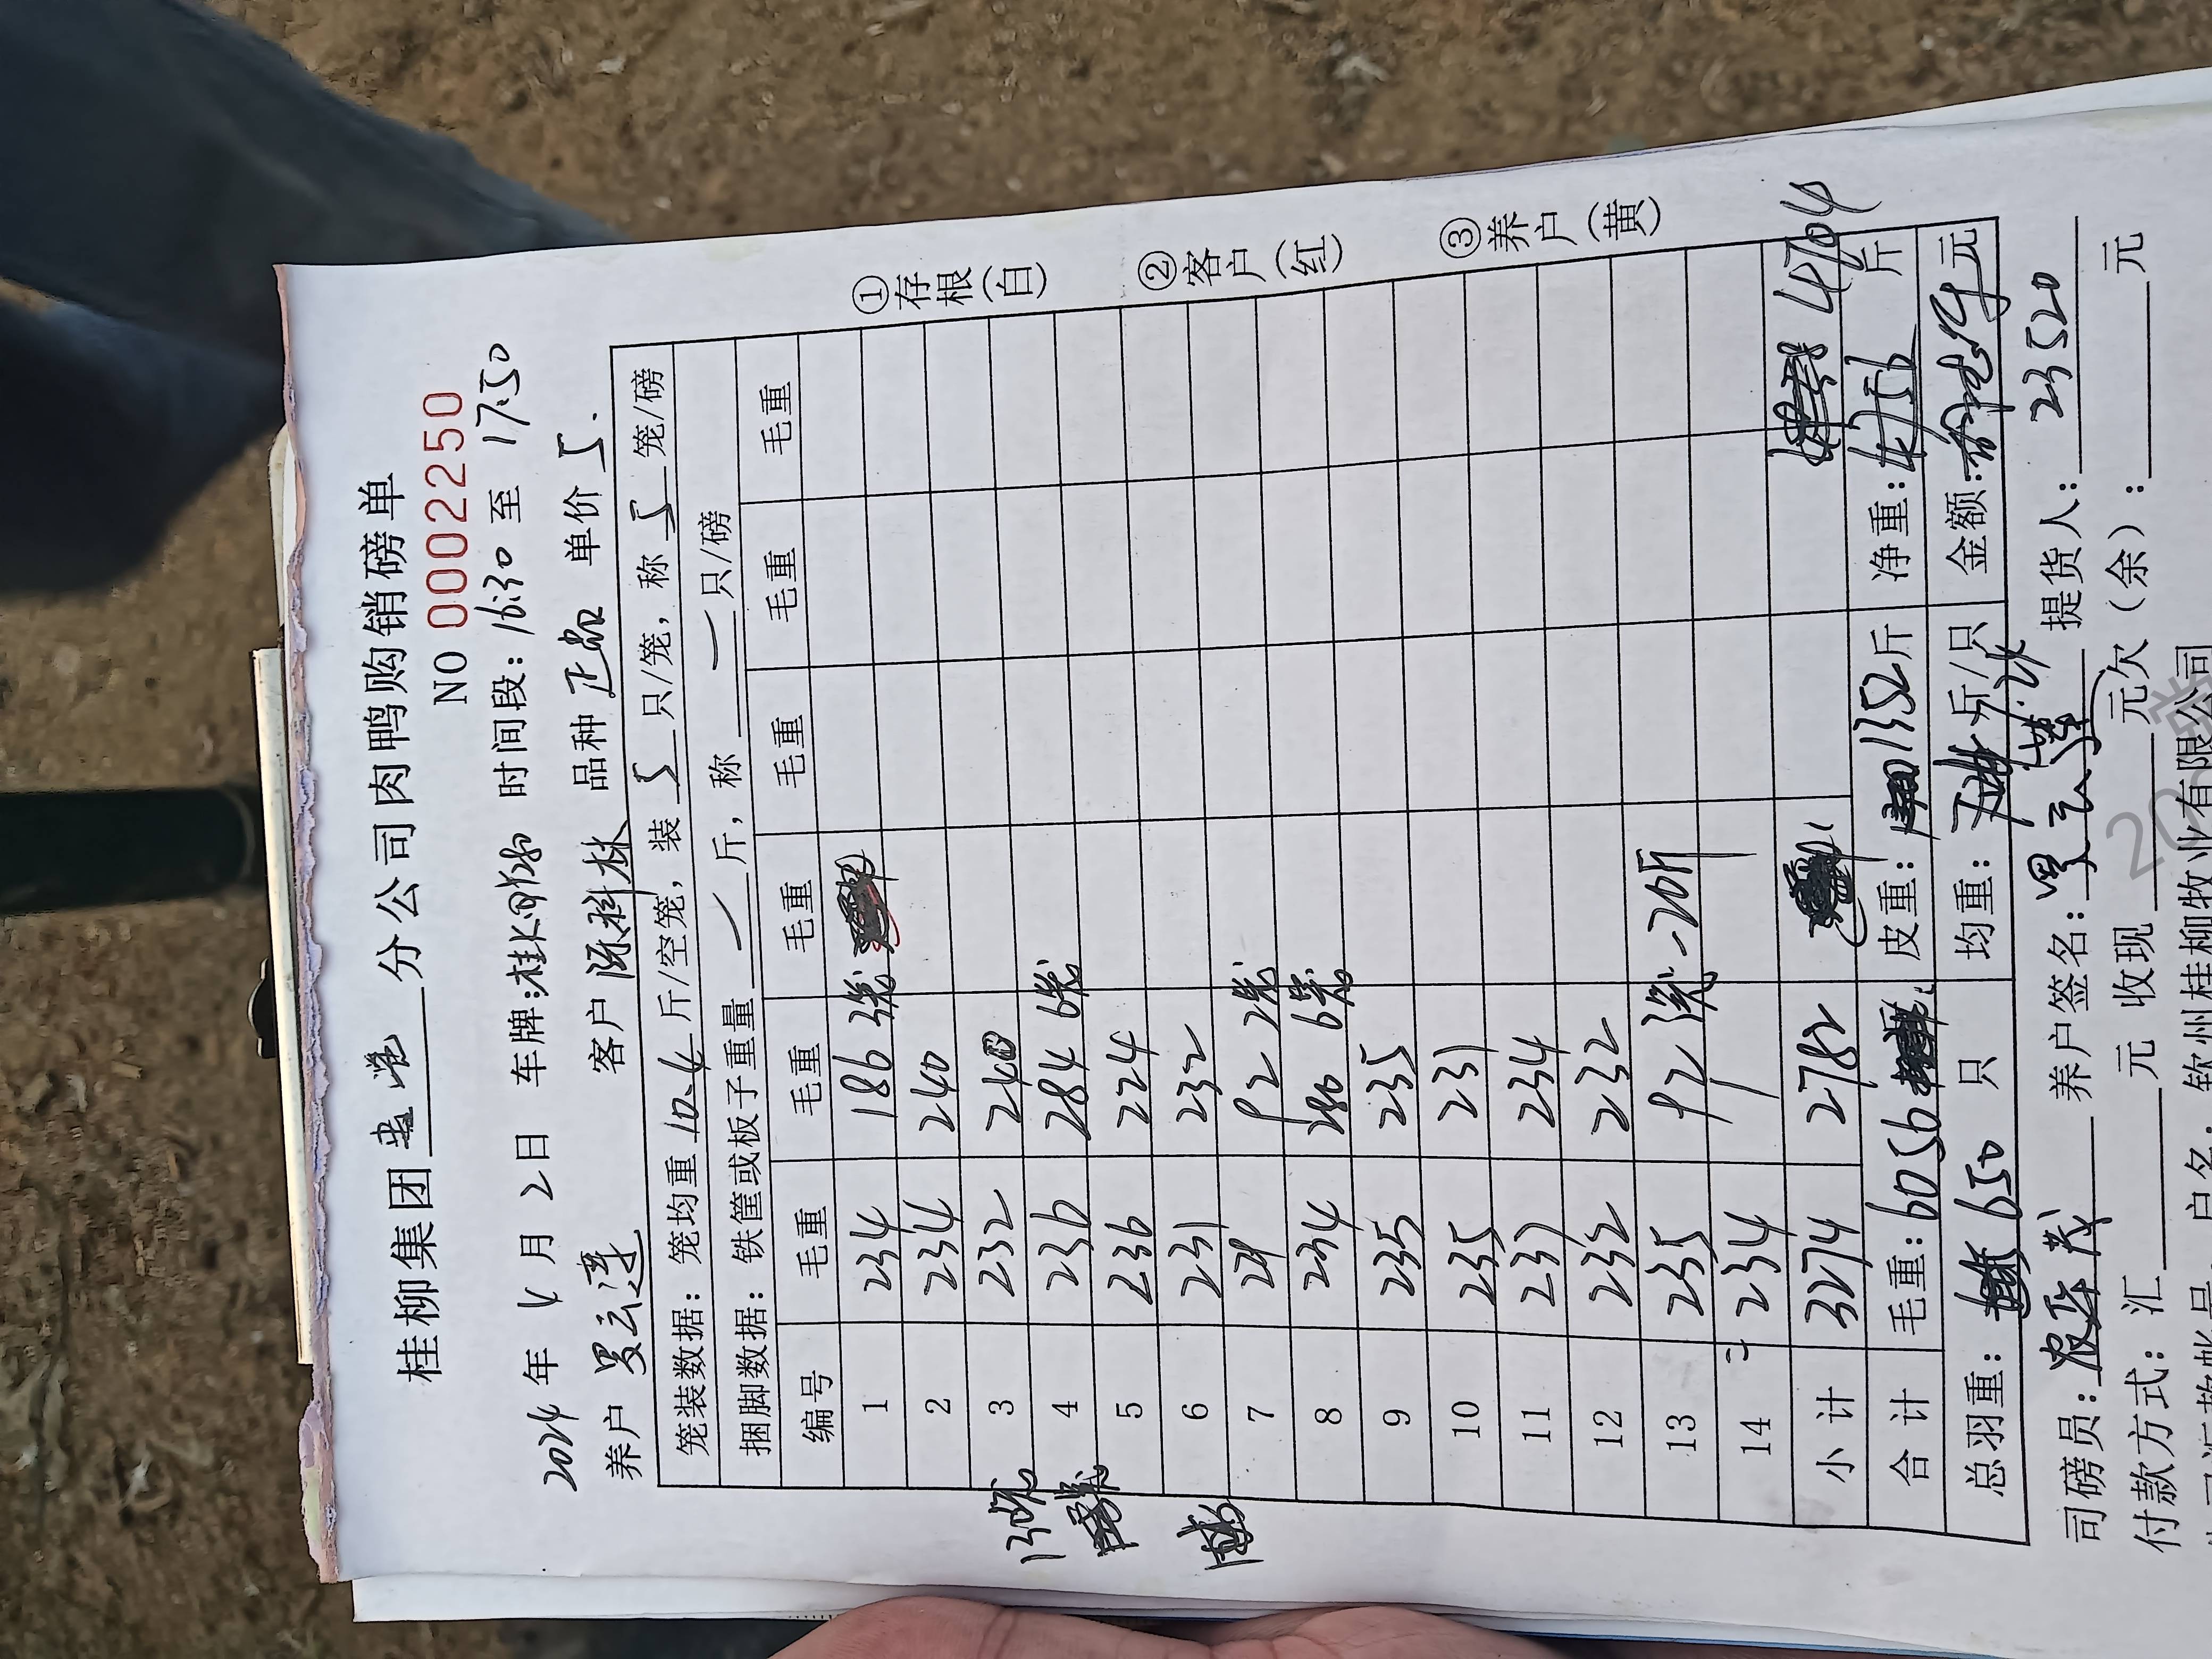 桂柳集团 分公司肉鸭购销磅单
NO 0002250
2024年4月2日 车牌: 时间段:16:30至17:50
养户 罗云莲 客户 陈科林 品种 正品 单价 5.
笼装数据:笼均重 10.4 斤/空笼,装 5 只/笼,称 5 笼/磅
捆脚数据:铁筐或板子重量 斤,称 只/磅
编号 毛重 毛重 毛重 毛重 毛重 毛重
1 234 186 3笼
2 234 240
3 232 240
130笼
4 236 284 6笼
5 236 224
6 231 232
7 92 2笼
8 234 280 6笼
9 235 235
10 235 231
11 237 234
12 232 232
13 235 92 -20斤
14 234
小计 3274 2782 4704
合计 毛重:6056 皮重: 1352斤 净重: 斤
总羽重: 650 只 均重: 斤/只 金额: 元
司磅员: 养户签名:罗云莲 提货人: 23520
付款方式:汇 元 收现 元欠(余): 元
户名:钦州桂柳牧业有限公司
①存根(白)
②客户(红)
③养户(黄)